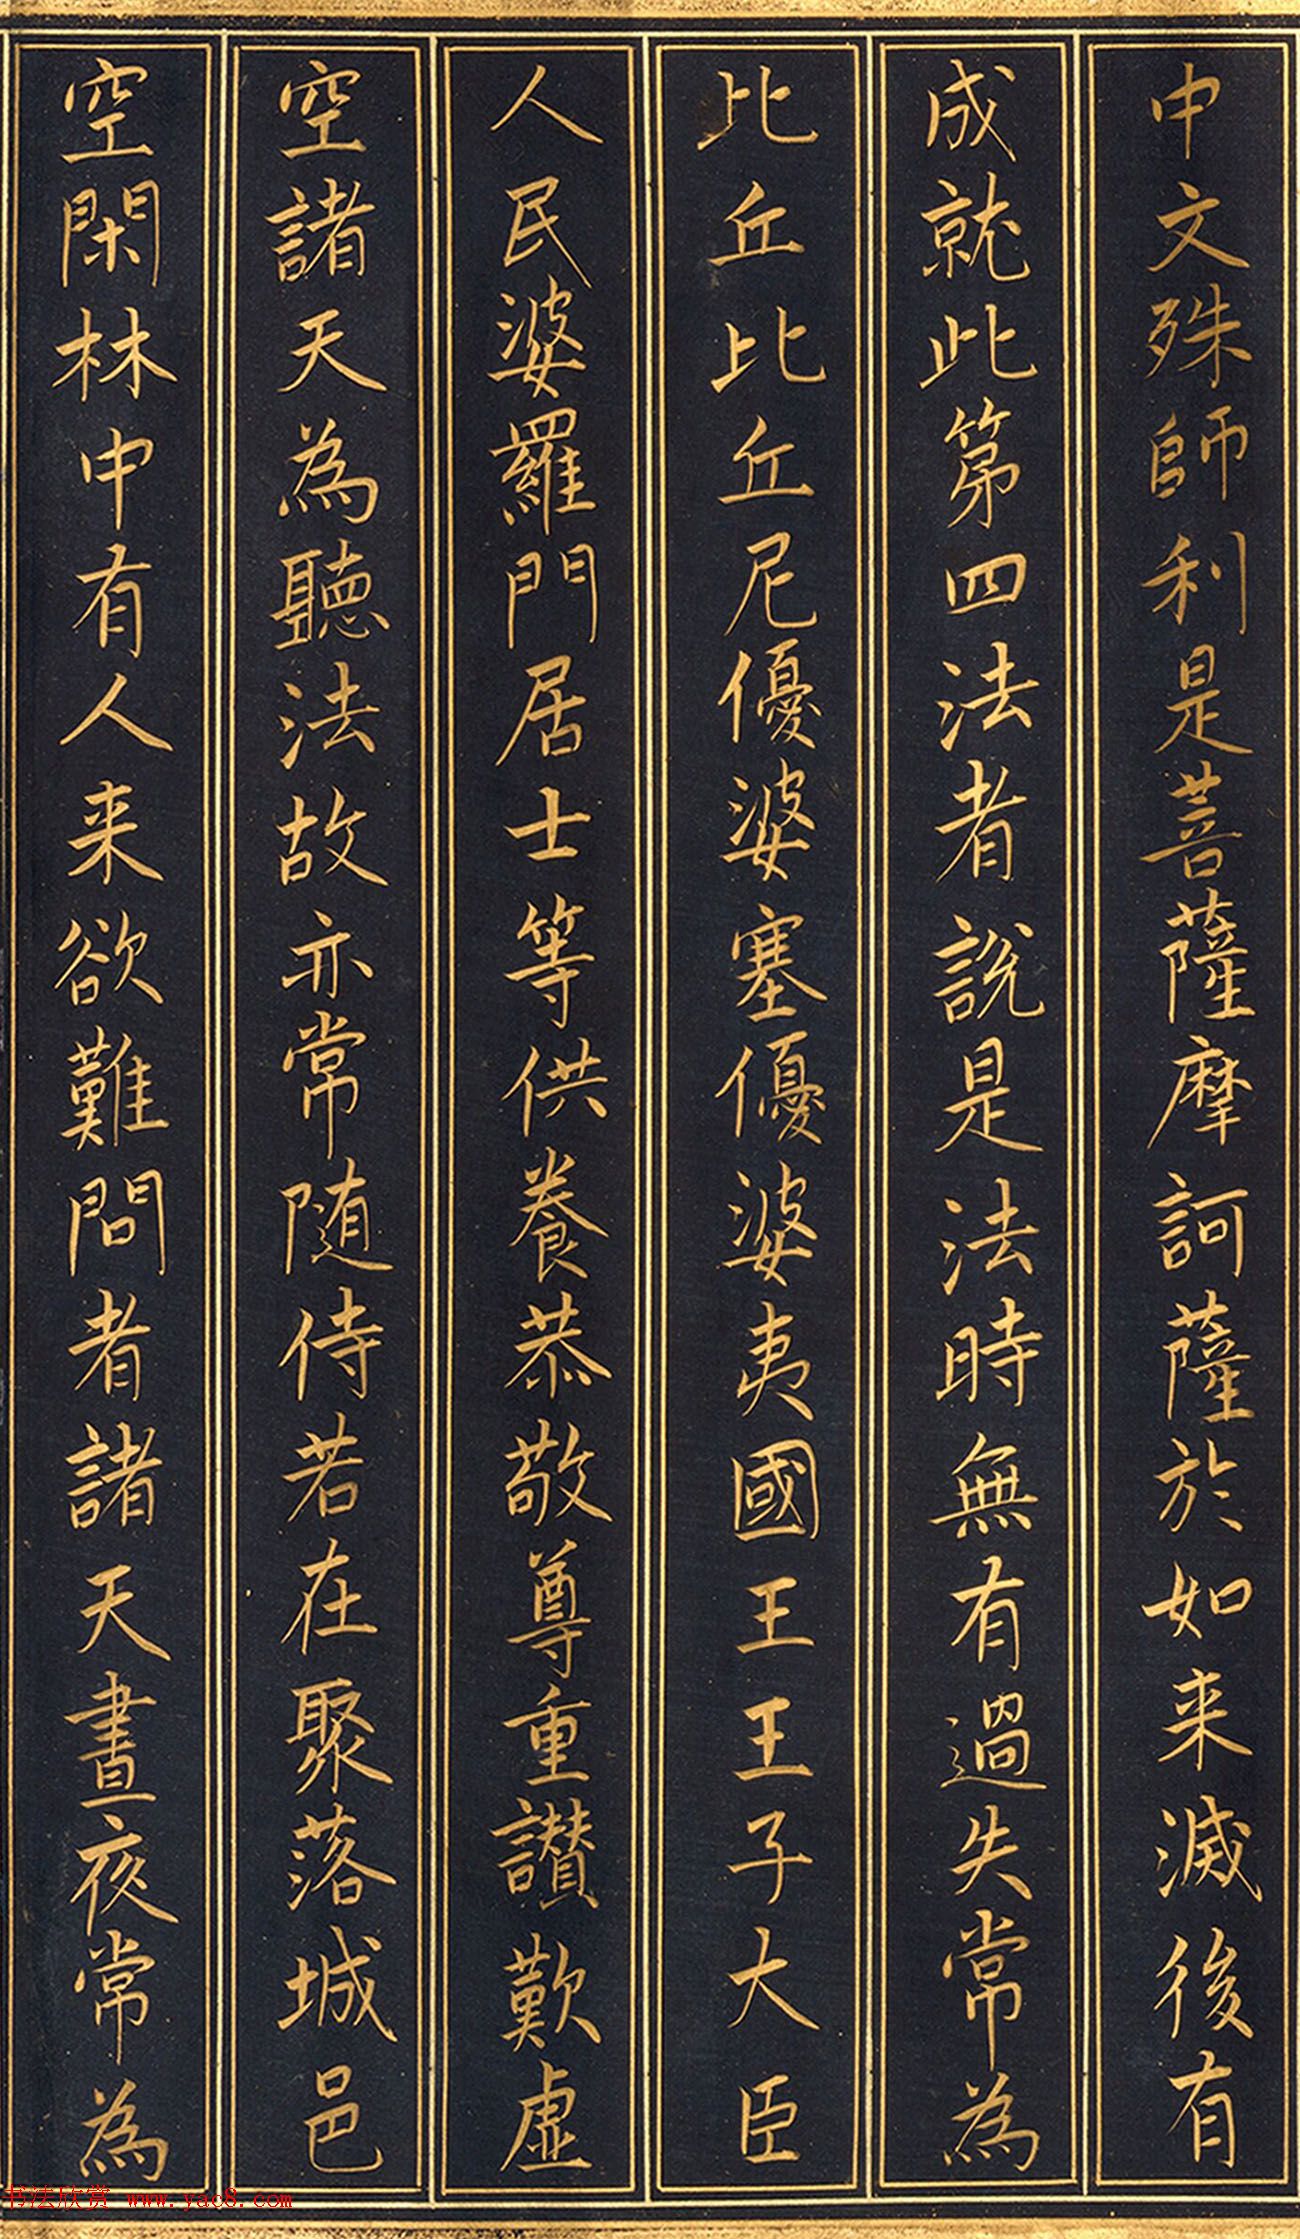 中文殊師利是菩薩摩訶薩於如来滅後有
成就此第四法者說是法時無有過失常為
比丘比丘尼優婆塞優婆夷國王王子大臣
人民婆羅門居士等供養恭敬尊重讃歎虛
空諸天為聽法故亦常随侍若在聚落城邑
空閑林中有人来欲難問者諸天晝夜常為
书法欣赏 www.yac8.com